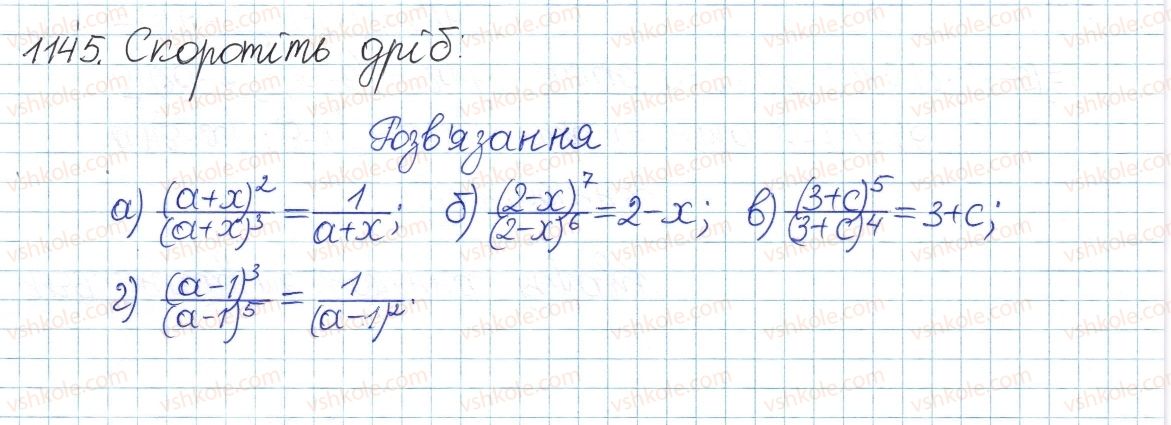 1145. Скоротіть дріб:
Розв'язання
а) (a+x)²/(a+x)³ = 1/(a+x); б) (2-x)⁷/(2-x)⁶ = 2-x; в) (3+c)⁵/(3+c)⁴ = 3+c;
г) (a-1)³/(a-1)⁵ = 1/(a-1)².